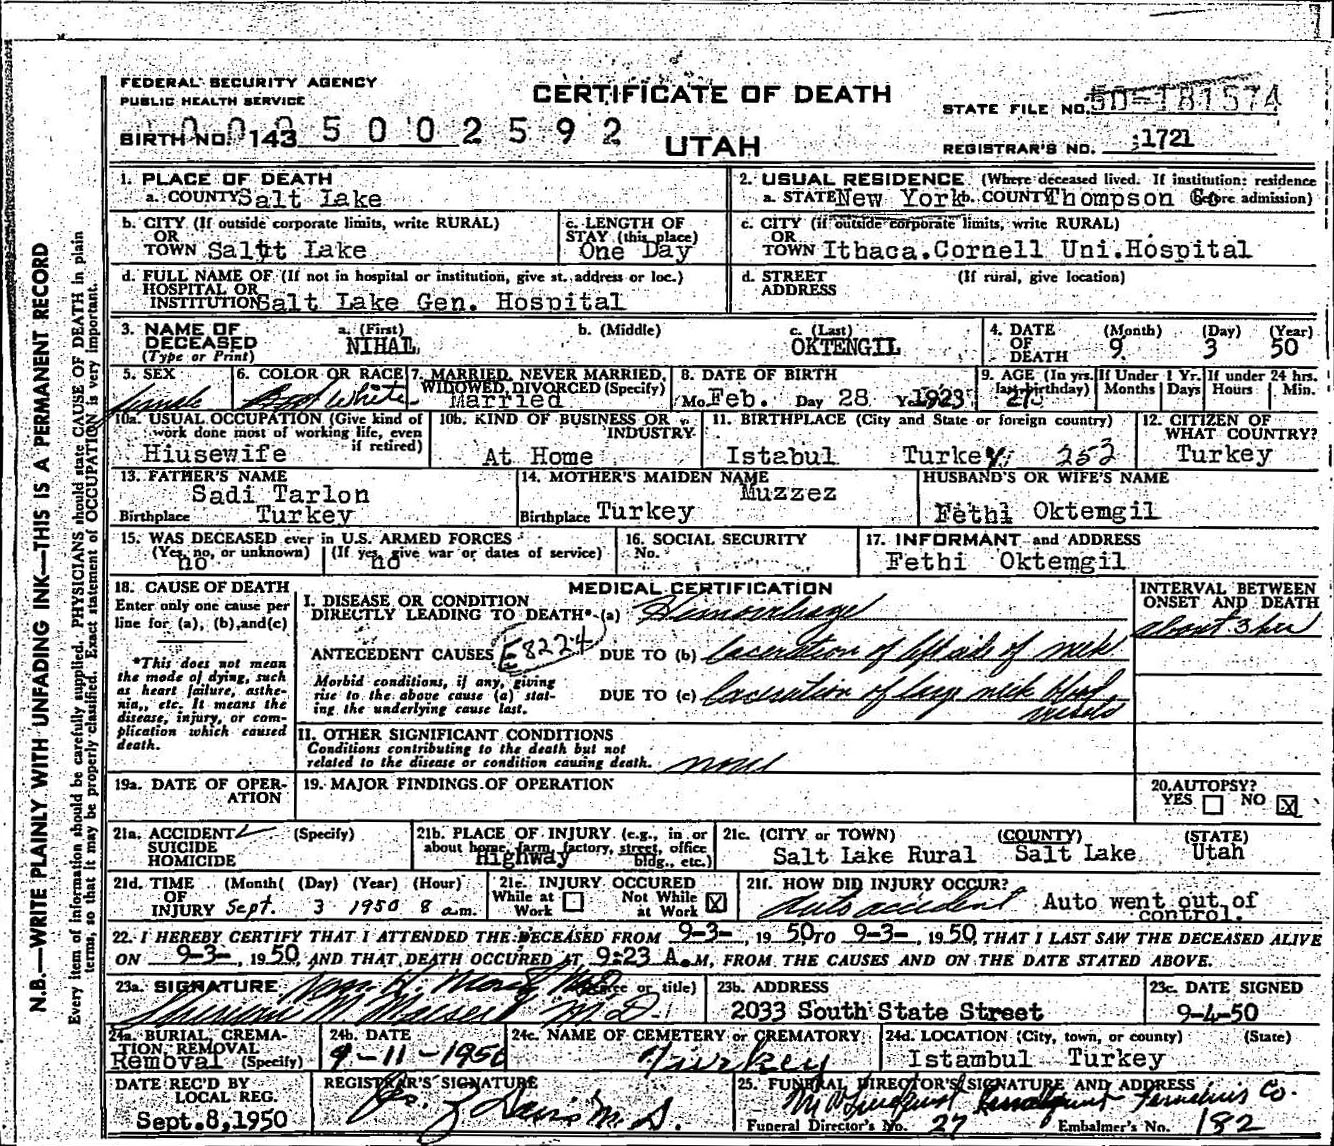 FEDERAL SECURITY AGENCY
PUBLIC HEALTH SERVICE
CERTIFICATE OF DEATH
STATE FILE NO. 50-181574
BIRTH NO. 143 5 0 0 2 5 9 2
UTAH
REGISTRAR'S NO. 1721
N.B.—WRITE PLAINLY WITH UNFADING INK—THIS IS A PERMANENT RECORD
Every item of information should be carefully supplied. PHYSICIANS should state CAUSE OF DEATH in plain
terms, so that it may be properly classified. Exact statement of OCCUPATION is very important.
1. PLACE OF DEATH
a. COUNTY Salt Lake
2. USUAL RESIDENCE (Where deceased lived. If institution: residence
a. STATE New York b. COUNTY Thompson Co before admission)
b. CITY (If outside corporate limits, write RURAL)
OR
TOWN Saltt Lake
c. LENGTH OF
STAY (this place)
One Day
c. CITY (if outside corporate limits, write RURAL)
OR
TOWN Ithaca.Cornell Uni.Hospital
d. FULL NAME OF (If not in hospital or institution, give st. address or loc.)
HOSPITAL OR
INSTITUTION Salt Lake Gen. Hospital
d. STREET (If rural, give location)
ADDRESS
3. NAME OF DECEASED
(Type or Print)
a. (First)
NIHAL
b. (Middle)
c. (Last)
OKTENGIL
4. DATE OF DEATH
(Month) (Day) (Year)
9 3 50
5. SEX
Female
6. COLOR OR RACE
White
7. MARRIED, NEVER MARRIED,
WIDOWED, DIVORCED (Specify)
Married
8. DATE OF BIRTH
Mo. Feb. Day 28 Yr. 1923
9. AGE (In yrs. last birthday)
27
If Under 1 Yr.
Months Days
If under 24 hrs.
Hours Min.
10a. USUAL OCCUPATION (Give kind of
work done most of working life, even
if retired)
Hiusewife
10b. KIND OF BUSINESS OR
INDUSTRY
At Home
11. BIRTHPLACE (City and State or foreign country)
Istabul Turkey 252
12. CITIZEN OF
WHAT COUNTRY?
Turkey
13. FATHER'S NAME
Sadi Tarlon
Birthplace Turkey
14. MOTHER'S MAIDEN NAME
Muzzez
Birthplace Turkey
HUSBAND'S OR WIFE'S NAME
Fethi Oktemgil
15. WAS DECEASED ever in U.S. ARMED FORCES
(Yes, no, or unknown) (If yes, give war or dates of service)
no no
16. SOCIAL SECURITY
No.
17. INFORMANT and ADDRESS
Fethi Oktemgil
18. CAUSE OF DEATH
Enter only one cause per
line for (a), (b), and(c)
*This does not mean
the mode of dying, such
as heart failure, asthe-
nia,, etc. It means the
disease, injury, or com-
plication which caused
death.
MEDICAL CERTIFICATION
I. DISEASE OR CONDITION
DIRECTLY LEADING TO DEATH*-(a) Hemorrhage
ANTECEDENT CAUSES E8224 DUE TO (b) laceration of left side of neck
Morbid conditions, if any, giving
rise to the above cause (a) stat-
ing the underlying cause last.
DUE TO (c) laceration of large neck blood
vessels
INTERVAL BETWEEN
ONSET AND DEATH
about 3 hrs
II. OTHER SIGNIFICANT CONDITIONS
Conditions contributing to the death but not
related to the disease or condition causing death. none
19a. DATE OF OPER-
ATION
19. MAJOR FINDINGS OF OPERATION
20. AUTOPSY?
YES NO X
21a. ACCIDENT ✓ (Specify)
SUICIDE
HOMICIDE
21b. PLACE OF INJURY (e.g., in or
about home, farm, factory, street, office
bldg., etc.)
Highway
21c. (CITY or TOWN) (COUNTY) (STATE)
Salt Lake Rural Salt Lake Utah
21d. TIME (Month( (Day) (Year) (Hour)
OF
INJURY Sept. 3 1950 8 a.m.
21e. INJURY OCCURED
While at Work Not While at Work X
21f. HOW DID INJURY OCCUR?
Auto accident Auto went out of
control.
22. I HEREBY CERTIFY THAT I ATTENDED THE DECEASED FROM 9-3-, 1950, TO 9-3-, 1950, THAT I LAST SAW THE DECEASED ALIVE
ON 9-3-, 1950, AND THAT DEATH OCCURED AT 9:23 A.M, FROM THE CAUSES AND ON THE DATE STATED ABOVE.
23a. SIGNATURE (Degree or title)
M.D.
23b. ADDRESS
2033 South State Street
23c. DATE SIGNED
9-4-50
24a. BURIAL, CREMA-
TION, REMOVAL
Removal (Specify)
24b. DATE
9-11-1950
24c. NAME OF CEMETERY or CREMATORY
Turkey
24d. LOCATION (City, town, or county) (State)
Istambul Turkey
DATE REC'D BY
LOCAL REG.
Sept.8,1950
REGISTRAR'S SIGNATURE
M.D.
25. FUNERAL DIRECTOR'S SIGNATURE AND ADDRESS
Funeral Director's No. 27 Embalmer's No. 182